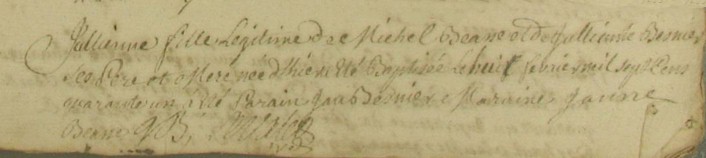 Jullienne fille Legitime de Michel Beane et de Jullienne Besnier
ses Pere et Mere née d'hier a Eté Baptisée le huit febvrier mil sept Cens
quarante un a Eté Parain Jan Besnier et Maraine Janne
Beane